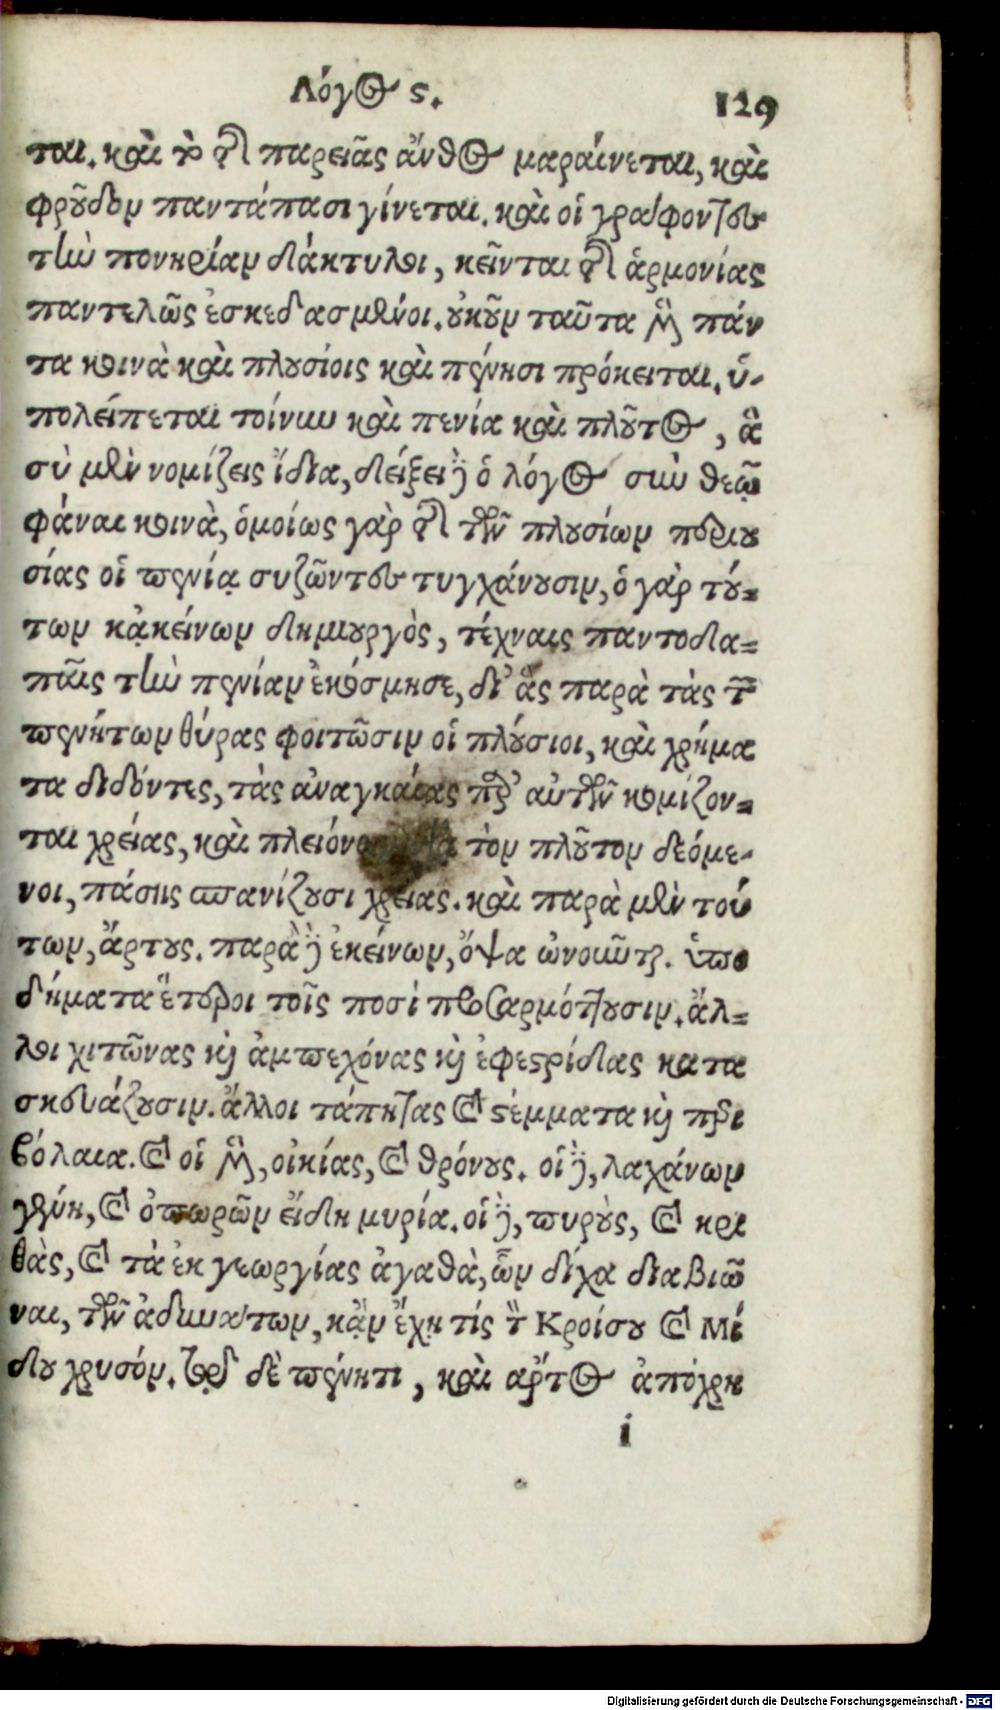 Λόγος ς.
129
ται. καὶ τὸ τῆς παρειᾶς ἄνθος μαραίνεται, καὶ
φροῦδον παντάπασι γίνεται. καὶ οἱ γράφοντες
τὴν πονηρίαν δάκτυλοι, κεῖνται τῆς ἁρμονίας
παντελῶς ἐσκεδασμένοι. οὐκοῦν ταῦτα μὲν πάν
τα κοινὰ καὶ πλουσίοις καὶ πένησι πρόκειται. ὑ-
πολείπεται τοίνυν καὶ πενία καὶ πλοῦτος, ἃ
σὺ μὲν νομίζεις ἴδια, δείξει δὲ ὁ λόγος σὺν θεῷ
φάναι κοινὰ, ὁμοίως γὰρ τῆς τῶν πλουσίων περιου
σίας οἱ πενίᾳ συζῶντες τυγχάνουσιν, ὁ γὰρ τού-
των κᾀκείνων δημιουργὸς, τέχναις παντοδα-
παῖς τὴν πενίαν ἐκόσμησε, δι' ἃς παρὰ τὰς τῶν
πενήτων θύρας φοιτῶσιν οἱ πλούσιοι, καὶ χρήμα
τα διδόντες, τὰς ἀναγκαίας παρ' αὐτῶν κομίζον-
ται χρείας, καὶ πλείονος τὸν πλοῦτον δεόμε-
νοι, πάσης σπανίζουσι χρείας. καὶ παρὰ μὲν τού
των, ἄρτους. παρὰ δὲ ἐκείνων, ὄψα ὠνοῦνται. ὑπο
δήματα ἕτεροι τοῖς ποσὶ προσαρμόττουσιν. ἄλ-
λοι χιτῶνας καὶ ἀμπεχόνας καὶ ἐφεστρίδας κατα
σκευάζουσιν. ἄλλοι τάπητας καὶ στέμματα καὶ περι
βόλαια. καὶ οἱ μὲν, οἰκίας, καὶ θρόνους. οἱ δὲ, λαχάνων
γένη, καὶ ὀπωρῶν εἴδη μυρία. οἱ δὲ, πυροὺς, καὶ κρι
θὰς, καὶ τὰ ἐκ γεωργίας ἀγαθὰ, ὧν δίχα διαβιῶ
ναι, τῶν ἀδυνάτων, κᾂν ἔχῃ τίς τὸν Κροίσου καὶ Μί
δου χρυσόν. τῷ δὲ πένητι, καὶ ἄρτος ἀπόχρη
i
Digitalisierung gefördert durch die Deutsche Forschungsgemeinschaft - DFG